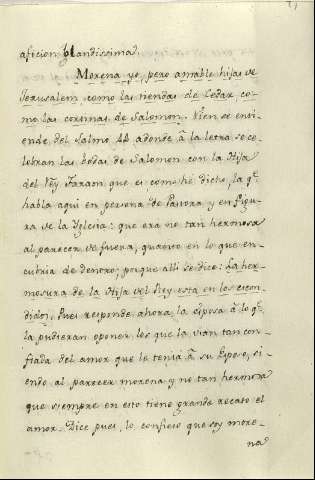 aficion blandissima.
Morena yo, pero amable hijas de
Jerusalem, como las tiendas de Cedar, co-
mo las cortinas de Salomon. Bien se enti-
ende del Salmo 44 adonde à la letra se ce-
lebran las bodas de Salomon con la Hija
del Rey Faraon que es como hé dicho, la qe.
habla aqui en persona de Pastora y en figu-
ra de la Yglesia: que era no tan hermosa
al parecer de fuera, quanto en lo que en-
cubria de dentro; porque alli se dice: La her-
mosura de la Hija del Rey está en los escon-
didos. Pues responde ahora, la esposa à lo qe.
la pudieran oponer los que la vian tan con-
fiada del amor que le tenia à su Esposo, si-
endo al parecer morena y no tan hermosa
que siempre en esto tiene grande recato el
amor. Dice pues, lo confieso que soy more-
na